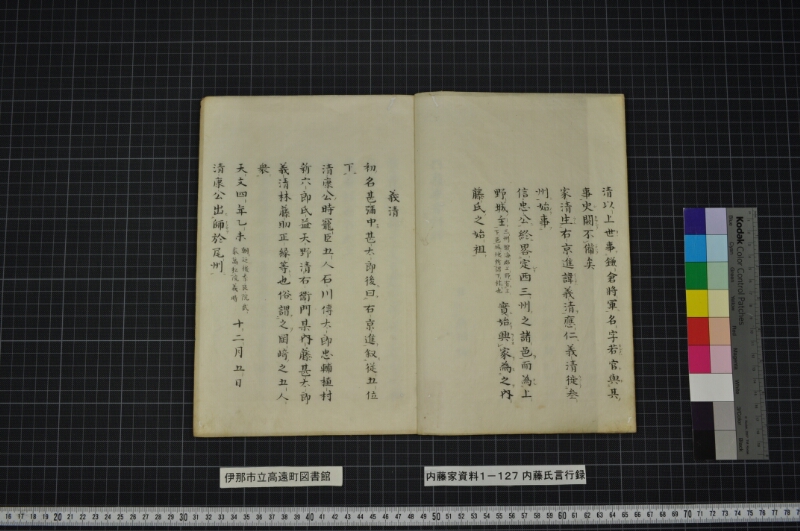 清以上世事鎌倉將軍名字若官與其
事史闕不備矣
家清生右京進諱義清應仁義清從参
州始事
信忠公終畧定西三州之諸邑而為上
野城主
實始興家為之内
藤氏之始祖
義清
初名甚彌中甚太郎後曰右京進叙從五位
下
清康公時寵臣五人石川傳太郎忠輔植村
新六郎氏益天野清右衛門某内藤甚太郎
義清林藤助正縁等也俗謂之岡崎之五人
衆
天文四年乙未
十二月五日
清康公出師於尾州
伊那市立高遠町図書館
内藤家資料1－127 内藤氏言行録
Kodak Color Control Patches